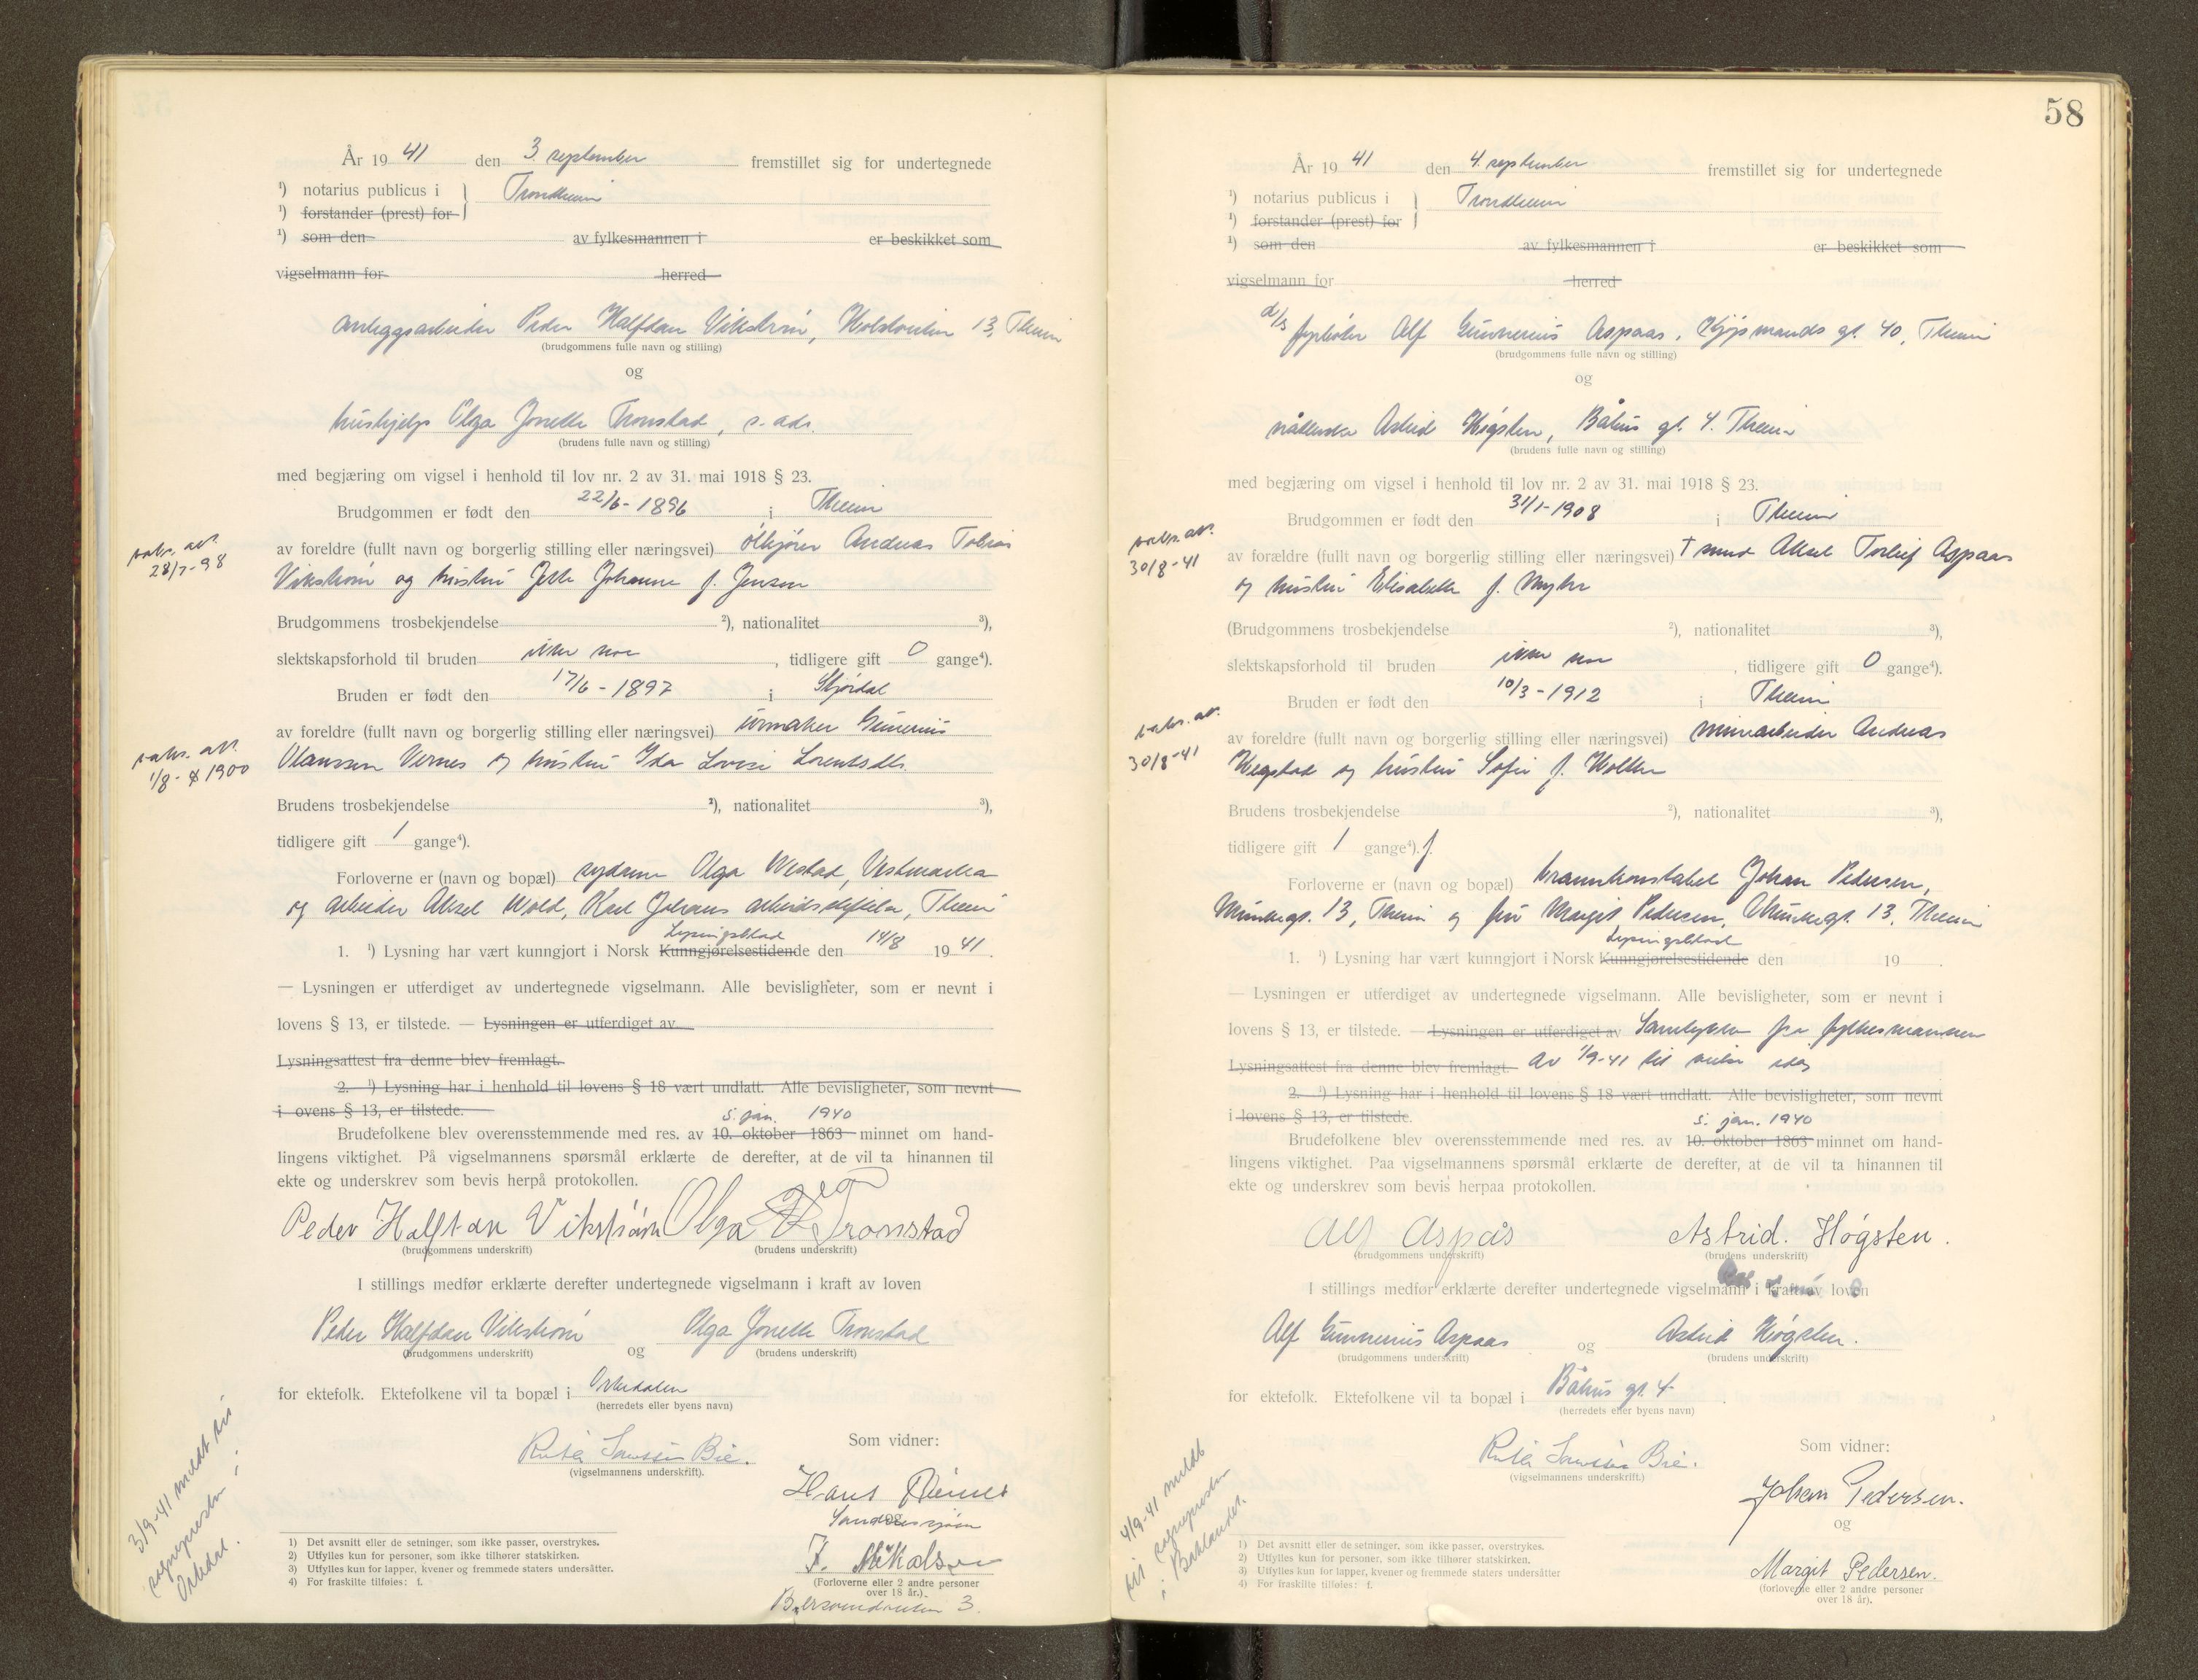 År 19 41 den 3. september fremstillet sig for undertegnede
¹) notarius publicus i Trondheim
¹) forstander (prest) for
¹) som den av fylkesmannen i er beskikket som
vigselmann for herred
anleggsarbeider Peder Halfdan Vikstrøm, 13, Theim
(brudgommens fulle navn og stilling)
og
hushjelp Olga Jonette Tronstad, s. ads.
(brudens fulle navn og stilling)
med begjæring om vigsel i henhold til lov nr. 2 av 31. mai 1918 § 23.
Brudgommen er født den 22/6-1896 i Theim
vaks. att. 28/7-98
av foreldre (fullt navn og borgerlig stilling eller næringsvei) ølkjører Andreas Tobias
Vikstrøm og hustru Jette Johanne f. Jensen
Brudgommens trosbekjendelse ²), nationalitet ³),
slektskapsforhold til bruden ikke noe, tidligere gift 0 gange⁴).
Bruden er født den 17/6-1897 i Stjørdal
av foreldre (fullt navn og borgerlig stilling eller næringsvei) urmaker Gunerius
vaks. att. 1/8-1900
Olaussen Vernes og hustru Ida Lovise Lorentsdtr.
Brudens trosbekjendelse ²), nationalitet ³),
tidligere gift 1 gange⁴).
Forloverne er (navn og bopæl) sydame Olga Westad,
og arbeider Aksel Wold, Karl Johans Theim
Lysingsblad
1. ¹) Lysning har vært kunngjort i Norsk Kunngjørelsestidende den 14/8 19 41.
— Lysningen er utferdiget av undertegnede vigselmann. Alle bevisligheter, som er nevnt i
lovens § 13, er tilstede. — Lysningen er utferdiget av
Lysningsattest fra denne blev fremlagt.
2. ¹) Lysning har i henhold til lovens § 18 vært undlatt. Alle bevisligheter, som nevnt
i ovens § 13, er tilstede.
5. jan. 1940
Brudefolkene blev overensstemmende med res. av 10. oktober 1863 minnet om hand-
lingens viktighet. På vigselmannens spørsmål erklærte de derefter, at de vil ta hinannen til
ekte og underskrev som bevis herpå protokollen.
Peder Halfdan Vikstrøm Olga Tronstad
(brudgommens underskrift) (brudens underskrift)
I stillings medfør erklærte derefter undertegnede vigselmann i kraft av loven
Peder Halfdan Vikstrøm og Olga Jonette Tronstad
(brudgommens underskrift) (brudens underskrift)
for ektefolk. Ektefolkene vil ta bopæl i Orkedalen
(herredets eller byens navn)
Bie.
(vigselmannens underskrift).
Som vidner:
Hans
og
Sandnessjøen
(Forloverne eller 2 andre personer
over 18 år.)
3.
3/9-41 meldt til
sogneprest i
Orkdal.
1) Det avsnitt eller de setninger, som ikke passer, overstrykes.
2) Utfylles kun for personer, som ikke tilhører statskirken.
3) Utfylles kun for lapper, kvener og fremmede staters undersåtter.
4) For fraskilte tilføies: f.
58
År 19 41 den 4. september fremstillet sig for undertegnede
¹) notarius publicus i Trondheim
¹) forstander (prest) for
¹) som den av fylkesmannen i er beskikket som
vigselmann for herred
d/s fyrbøter Alf Gunnerius Aspaas, Kjøpmands gt. 40, Theim
(brudgommens fulle navn og stilling)
og
Astrid Høgsten, Båhus gt. 4. Theim
(brudens fulle navn og stilling)
med begjæring om vigsel i henhold til lov nr. 2 av 31. mai 1918 § 23.
Brudgommen er født den 31/1-1908 i Theim
30/8-41
av forældre (fullt navn og borgerlig stilling eller næringsvei) † Aksel Torleif Aspaas
og hustru Elisabeth f. Myhr
(Brudgommens trosbekjendelse ²), nationalitet ³),
slektskapsforhold til bruden ikke noe, tidligere gift 0 gange⁴).
Bruden er født den 10/3-1912 i Theim
vaks. att. 30/8-41
av foreldre (fullt navn og borgerlig stilling eller næringsvei) minearbeider Andreas
Hegstad og hustru Sofie f. Holten
Brudens trosbekjendelse ²), nationalitet ³),
tidligere gift 1 gange⁴). f.
Forloverne er (navn og bopæl) brannkonstabel Johan Pedersen,
Munkegt. 13, Theim og fru Margit Pedersen, Munkegt. 13, Theim
Lysingsblad
1. ¹) Lysning har vært kunngjort i Norsk Kunngjørelsestidende den 19 .
— Lysningen er utferdiget av undertegnede vigselmann. Alle bevisligheter, som er nevnt i
lovens § 13, er tilstede. — Lysningen er utferdiget av Samtykke fra fylkesmannen
Lysningsattest fra denne blev fremlagt. av 1/9-41 til vielse idag
2. ¹) Lysning har i henhold til lovens § 18 vært undlatt. Alle bevisligheter, som nevnt
i lovens § 13, er tilstede.
5. jan. 1940
Brudefolkene blev overensstemmende med res. av 10. oktober 1863 minnet om hand-
lingens viktighet. Paa vigselmannens spørsmål erklærte de derefter, at de vil ta hinannen til
ekte og underskrev som bevis herpaa protokollen.
Alf Aspås Astrid. Høgsten.
(brudgommens underskrift) (brudens underskrift)
I stillings medfør erklærte derefter undertegnede vigselmann i kraft av loven
Alf Gunnerius Aspaas og Astrid Høgsten.
(brudgommens underskrift) (brudens underskrift)
for ektefolk. Ektefolkene vil ta bopæl i Båhus gt. 4.
(herredets eller byens navn)
Bie.
(vigselmannens underskrift.)
Som vidner:
Johan Pedersen.
og
Margit Pedersen.
(forloverne eller 2 andre personer
over 18 år).
4/9-41 meldt
til sognepresten
i Baklandet.
1) Det avsnitt eller de setninger, som ikke passer, overstrykes.
2) Utfylles kun for personer, som ikke tilhører statskirken.
3) Utfylles kun for lapper, kvener og fremmede staters undersåtter
4) For fraskilte tilføies: f.